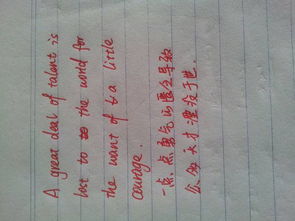 A great deal of talent is
lost to the world for
the want of a little
courage.
一点点勇气的匮乏导致
天才湮没于世